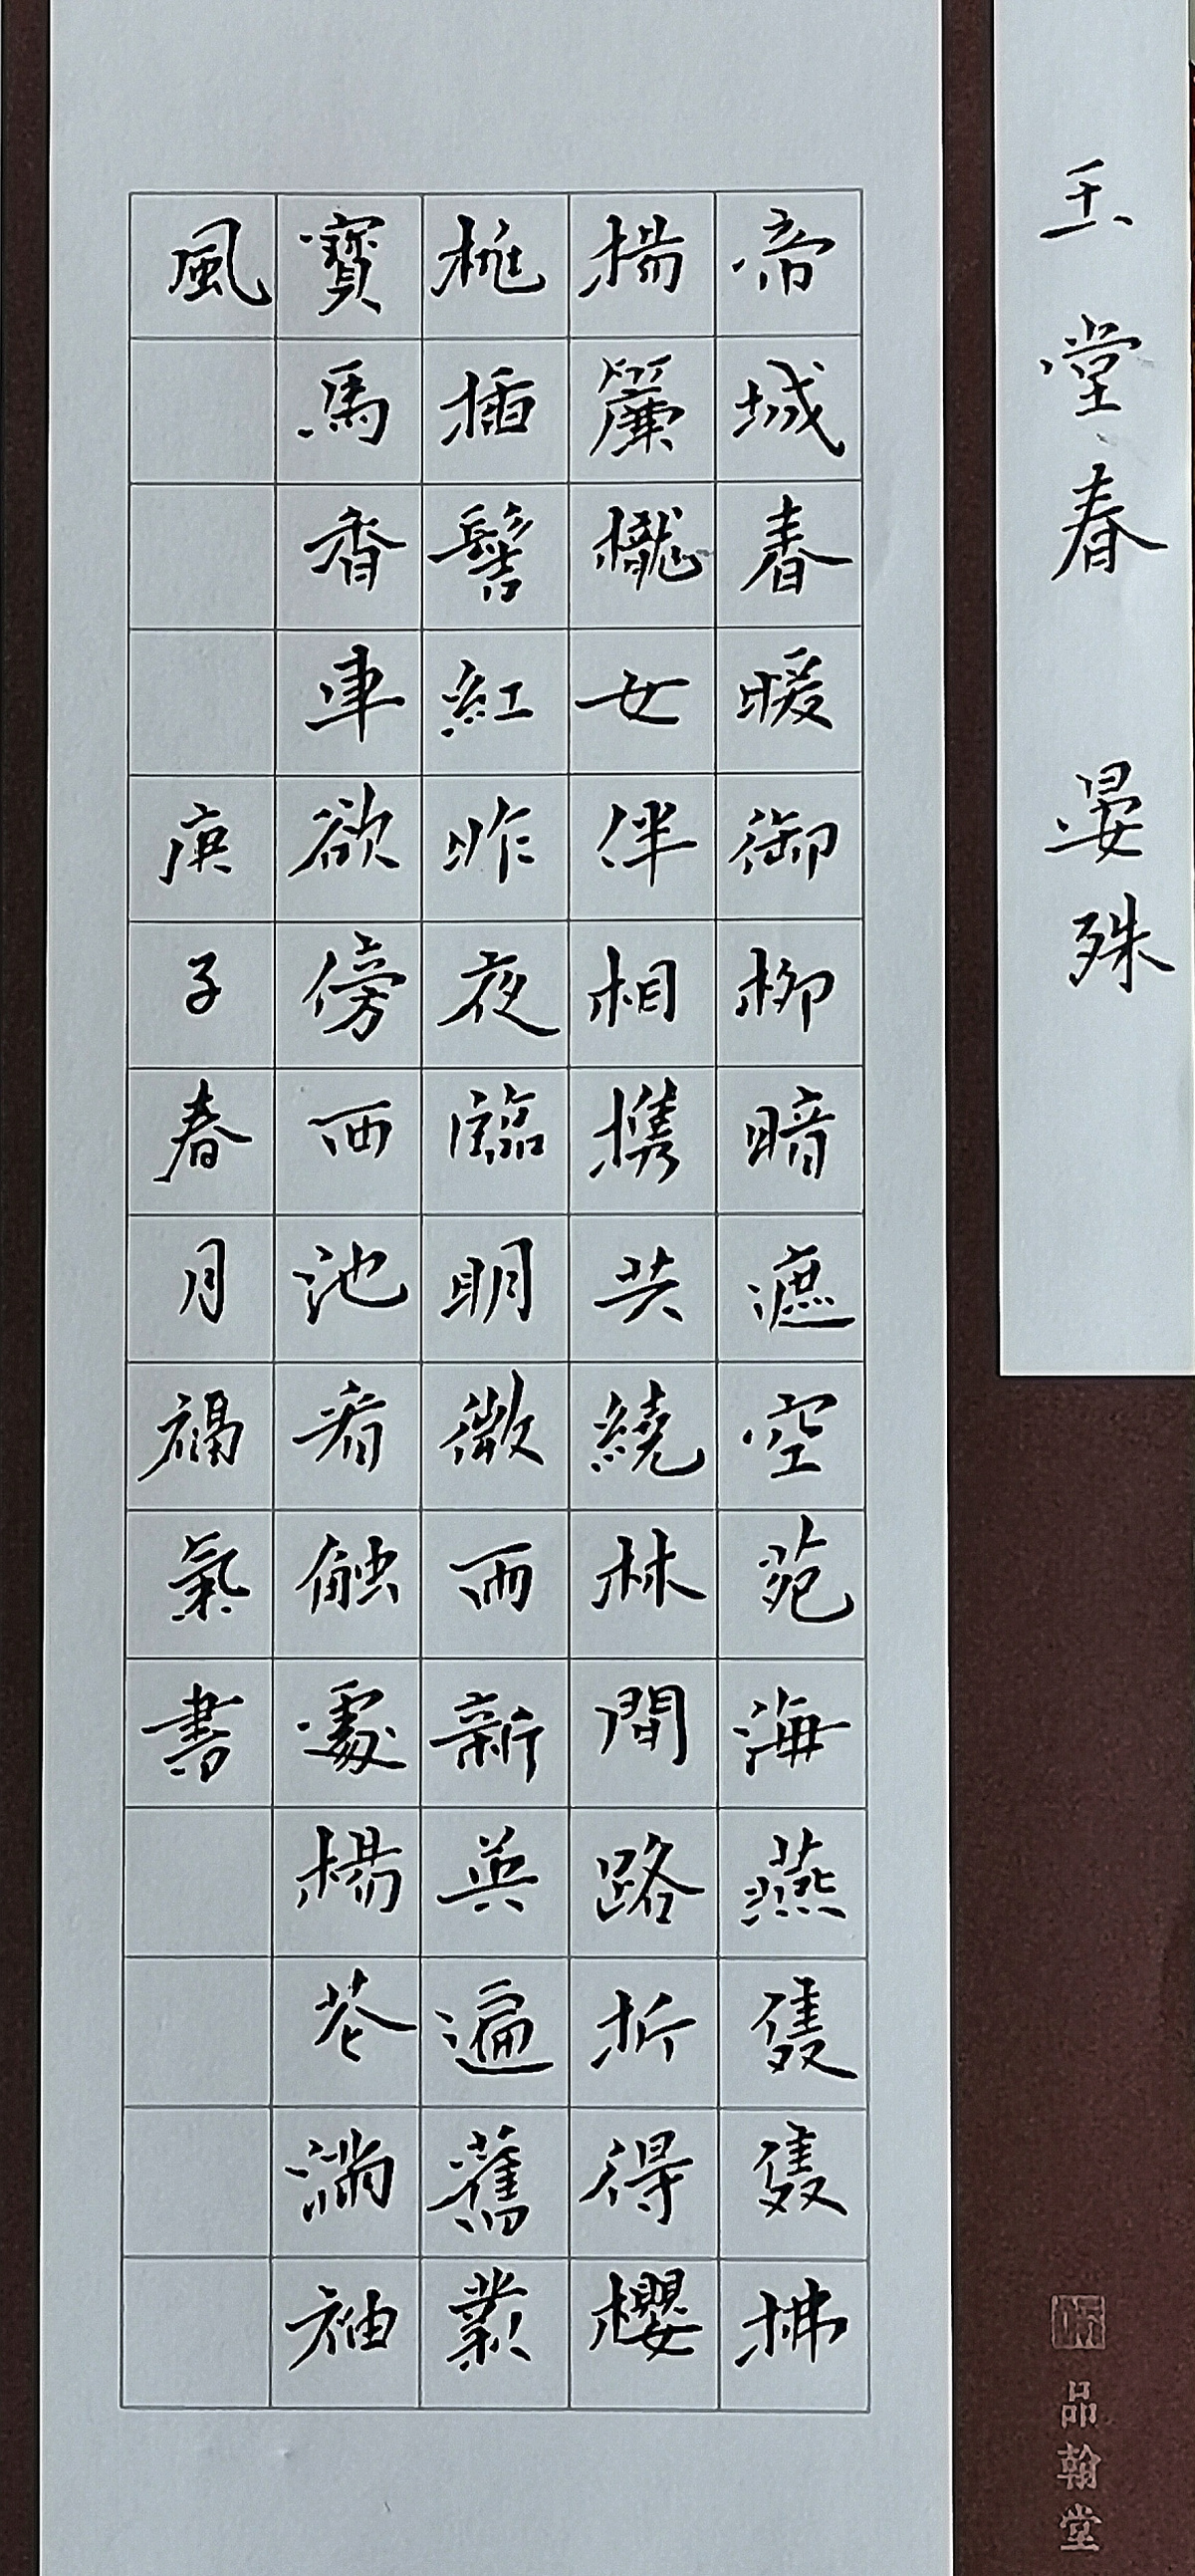 玉堂春 晏殊
帝城春暖御柳暗遮空苑海燕雙雙拂
楊簾櫳女伴相攜共繞林間路折得櫻
桃插髻紅昨夜臨明微雨新英遍舊叢
寶馬香車欲傍西池看觸處楊花滿袖
風 庚子春月福氣書
品翰堂